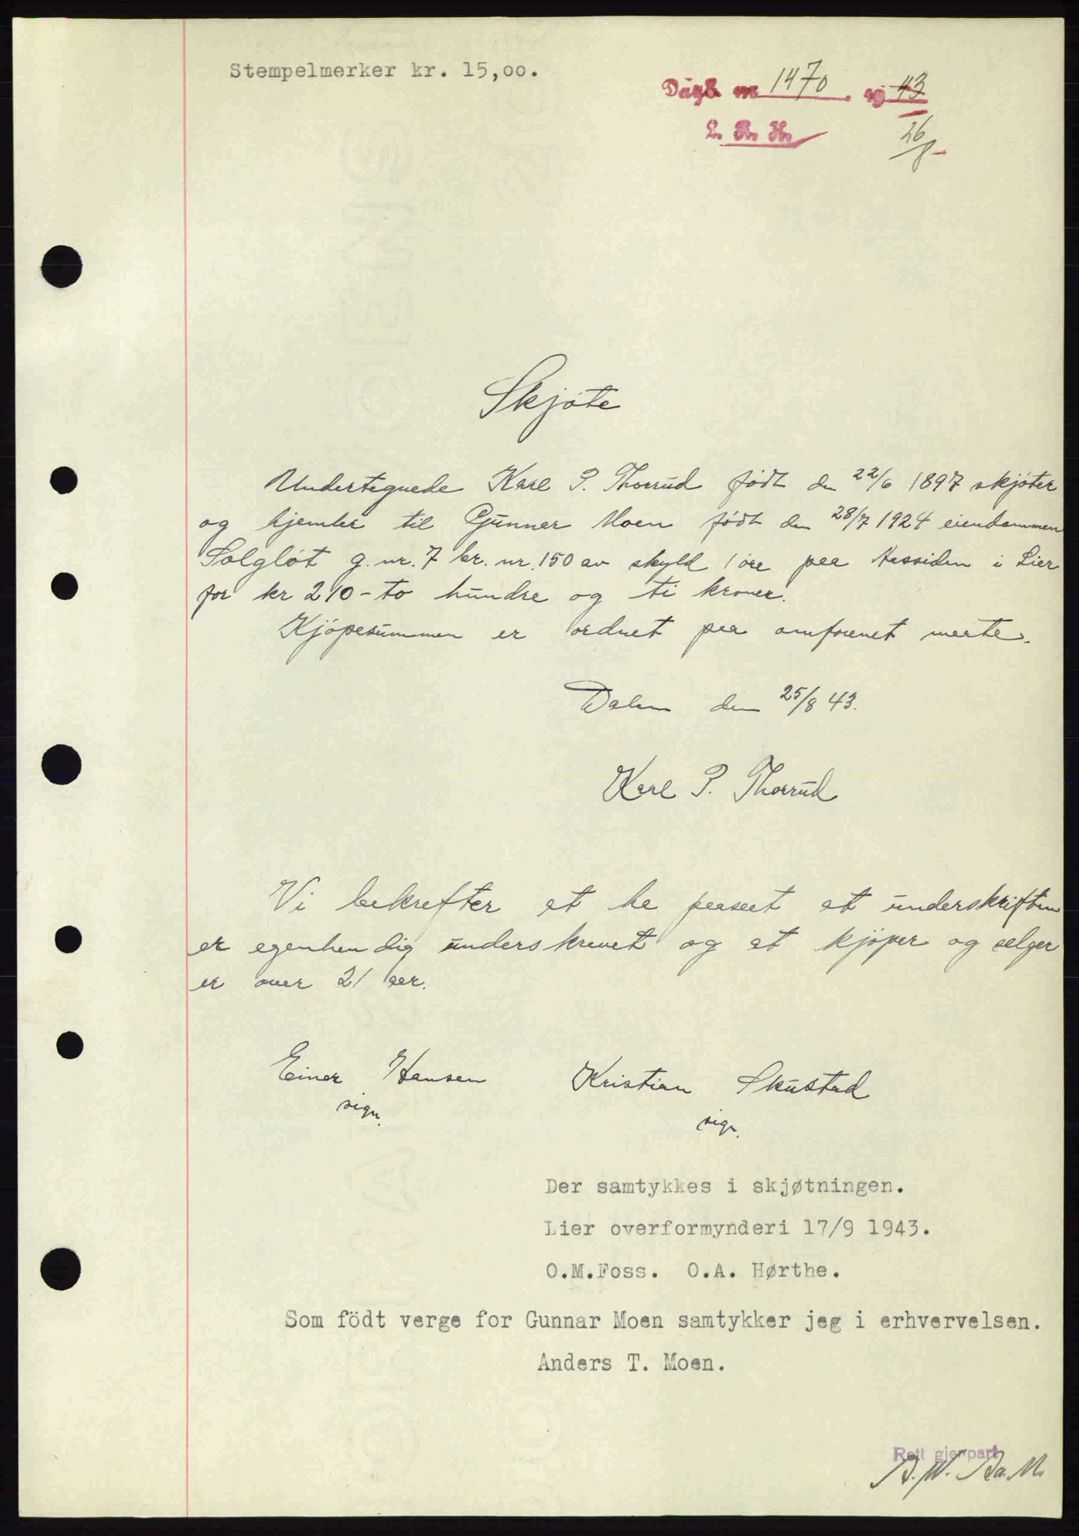 Stempelmerker kr. 15,oo.
Dagb. nr. 1470. 1943
L. R. H. 26/8
Skjøte
Undertegnede Karl P. Thorrud født den 22/6 1897 skjøter
og hjemler til Gunner Moen født den 28/7 1924 eiendommen
Solgløt g. nr. 7 br. nr. 150 av skyld 1 øre paa Aassiden i Lier
for kr 210 - to hundre og ti kroner.
Kjöpesummen er ordnet paa omforenet maate.
Dalen den 25/8 43.
Karl P. Thorrud
Vi bekrefter at ha passet at underskriften
er egenhendig underskrevet og at kjøper og selger
er over 21 aar.
Einar Hansen Kristian Skustad
sign. sign.
Der samtykkes i skjøtningen.
Lier overformynderi 17/9 1943.
O.M.Foss. O.A. Hørthe.
Som födt verge for Gunnar Moen samtykker jeg i erhvervelsen.
Anders T. Moen.
Rett gjenpart